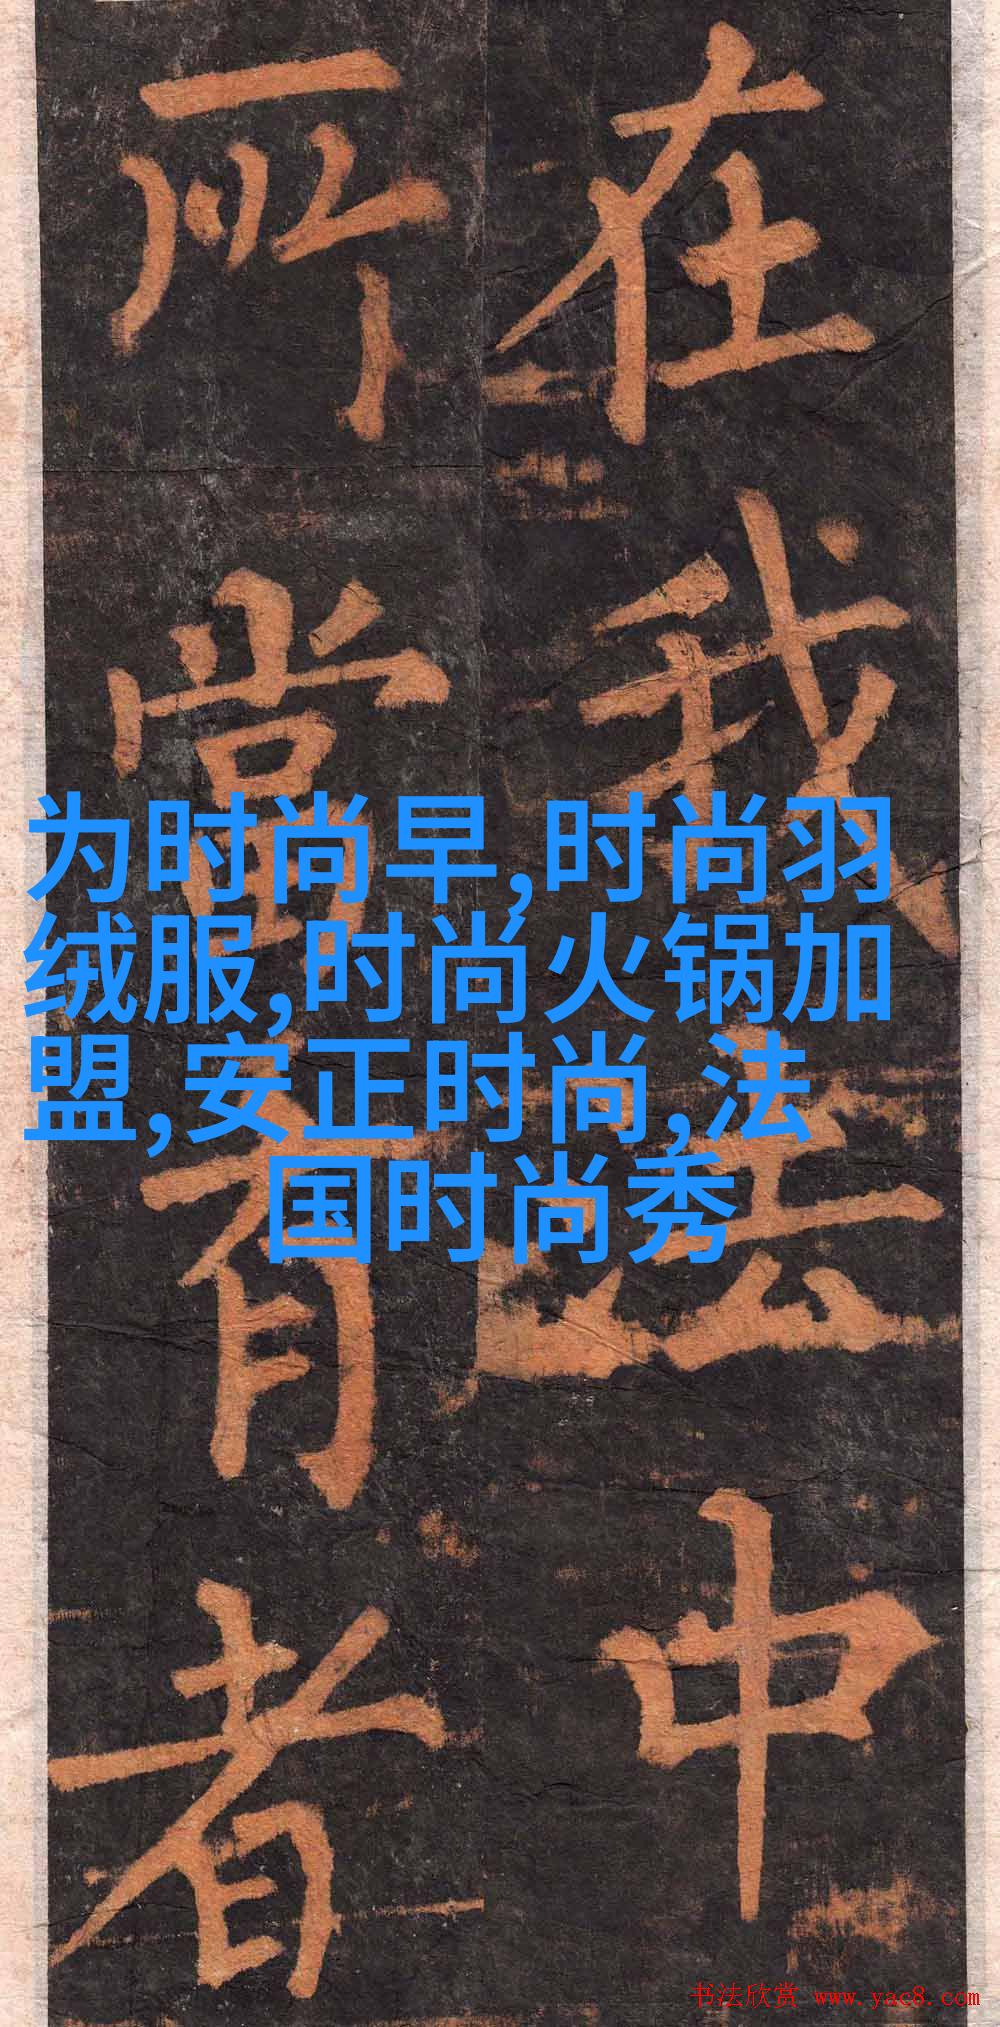 在我法中
所當有者
为时尚早,时尚羽
绒服,时尚火锅加
盟,安正时尚,法
国时尚秀
书法欣赏 www.yac8.com